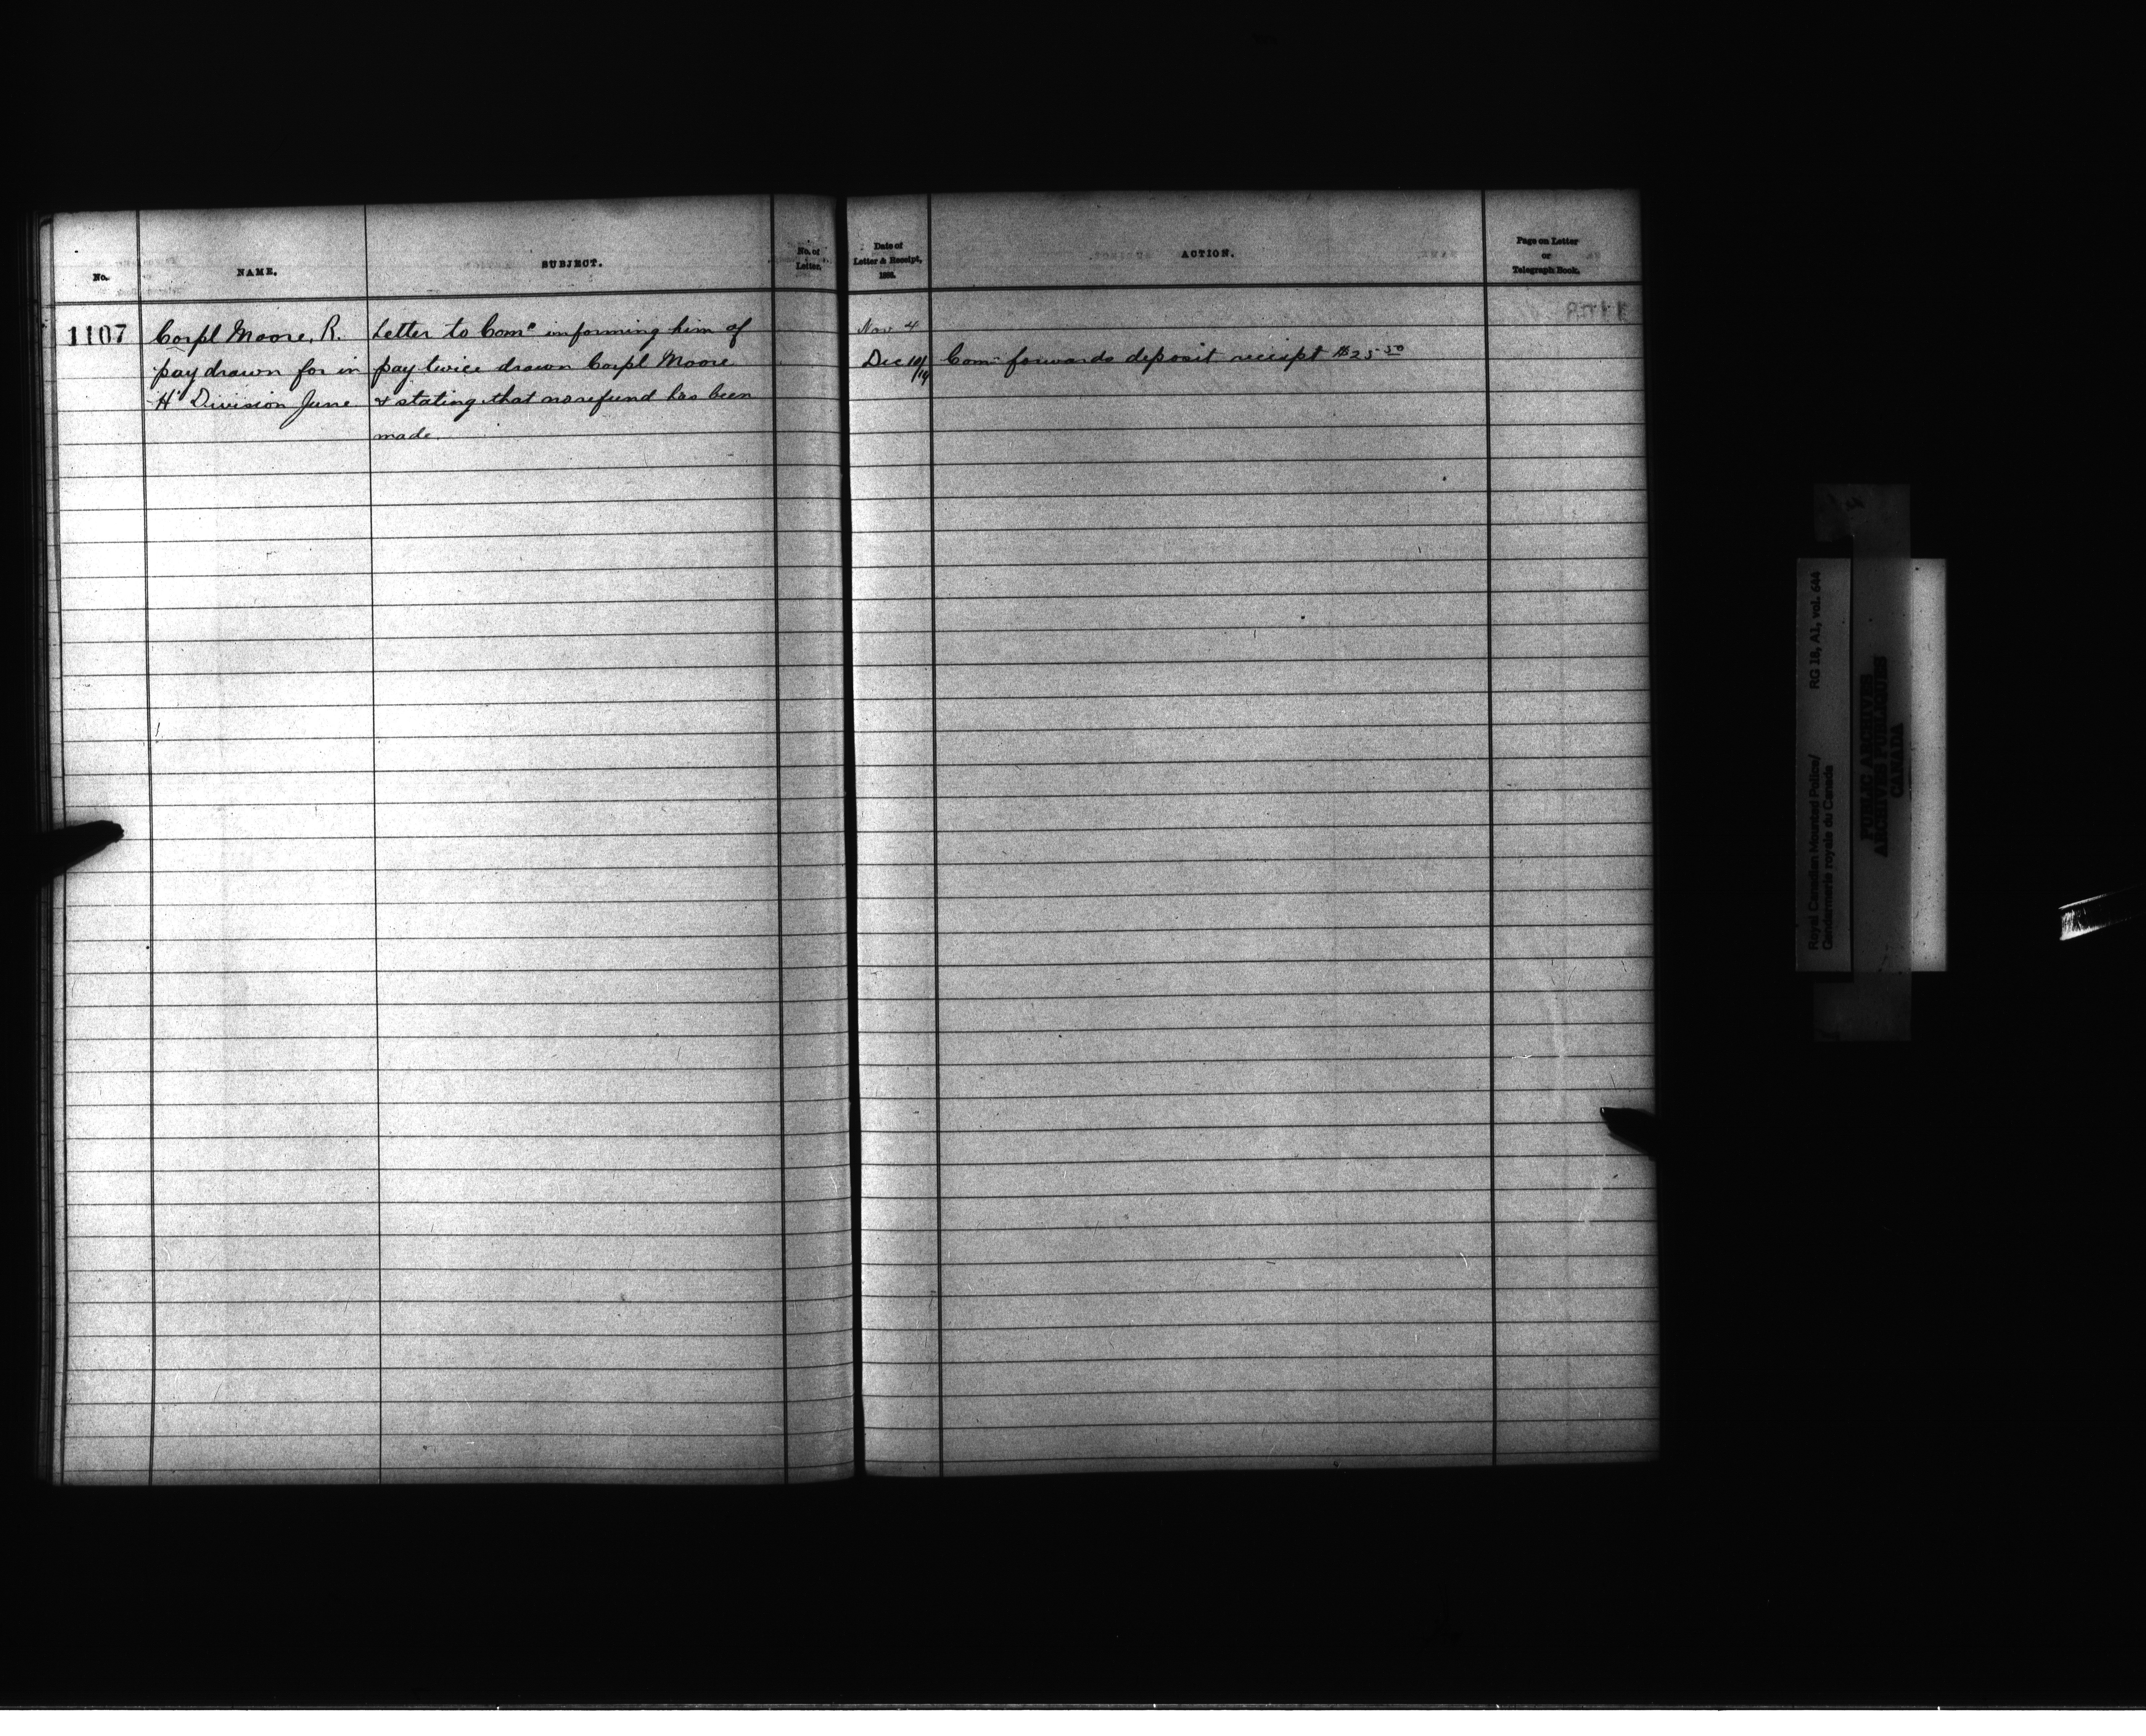 No.
NAME.
SUBJECT.
No. of
Letter.
Date of
Letter & Receipt,
188 .
ACTION.
Page on Letter
or
Telegraph Book.
1107
Corpl Moore, R.
pay drawn for in
"H" Division June
Letter to Comr informing him of
pay twice drawn Corpl Moore
& stating that no refund has been
made.
Nov 4
Dec 10/14
Comr forwards deposit receipt $25.50
Royal Canadian Mounted Police/ RG 18, A1, vol. 644
Gendarmerie royale du Canada
PUBLIC ARCHIVES
ARCHIVES PUBLIQUES
CANADA